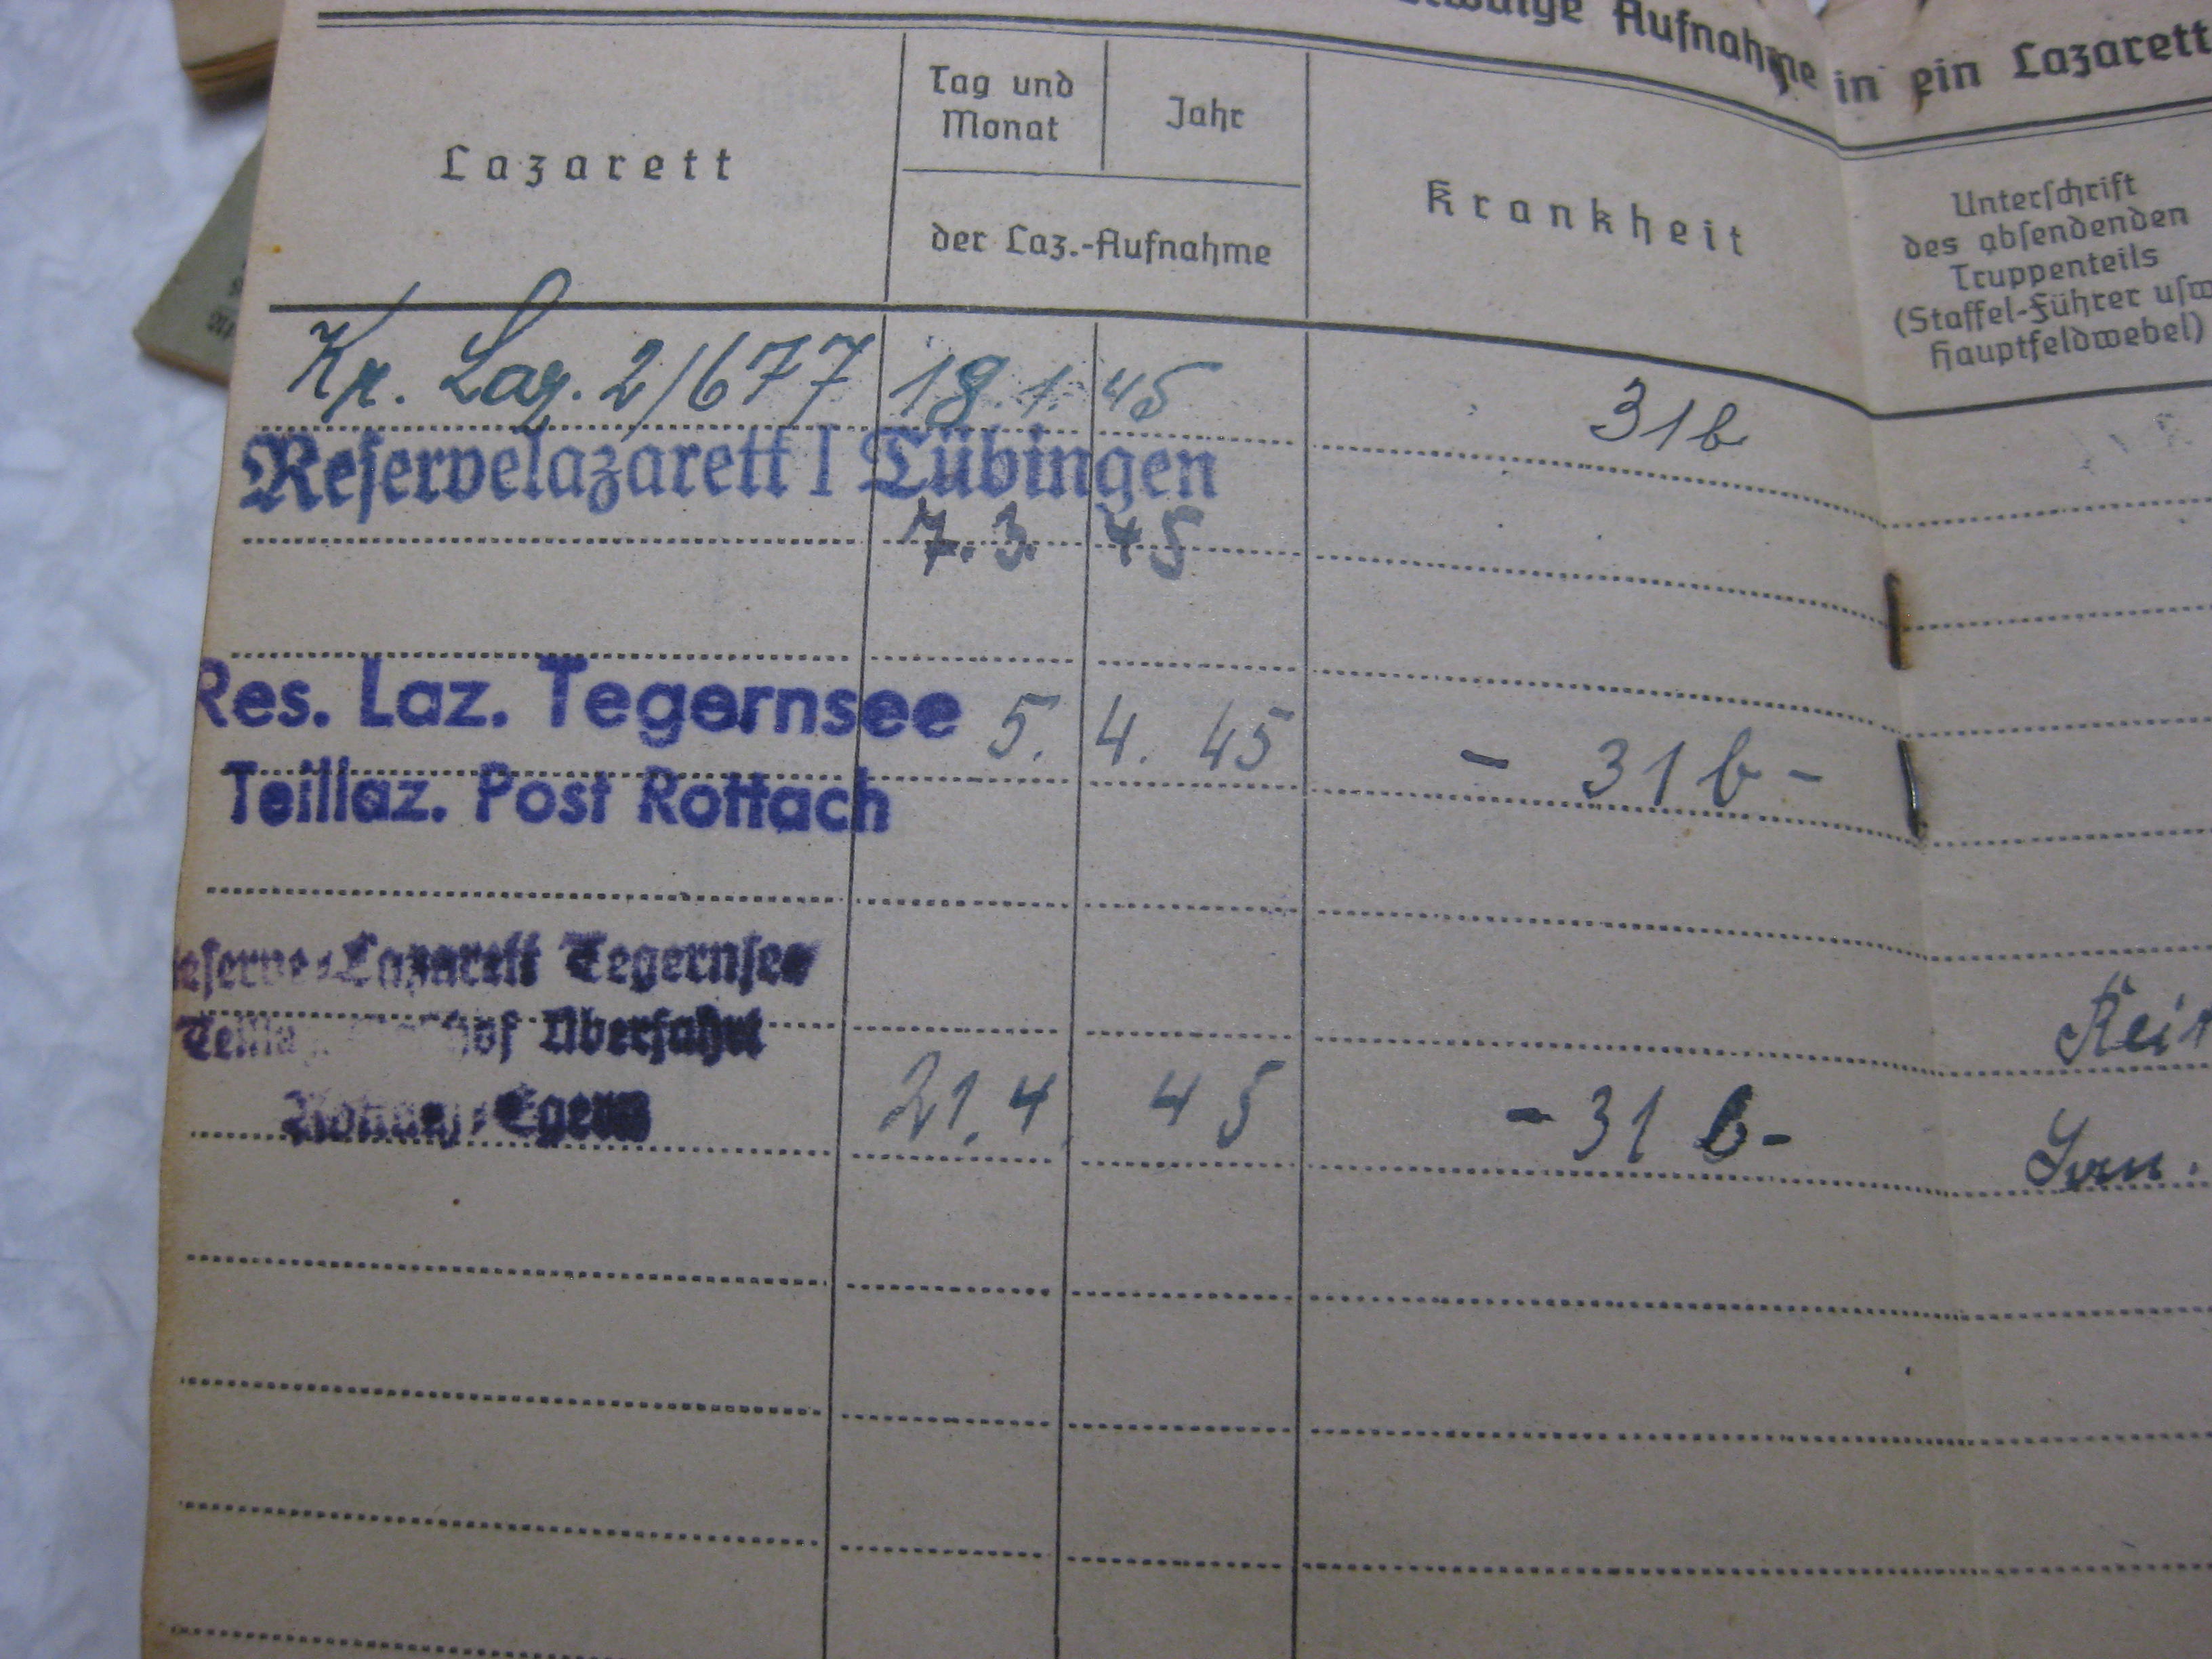 Aufnahme in ein Lazarett
Lazarett
Tag und
Monat
Jahr
der Laz.-Aufnahme
Krankheit
Unterschrift
des absendenden
Truppenteils
(Staffel-Führer usw
Hauptfeldwebel)
Kr. Laz. 2/677 18.1. 45 31b
Reservelazarett I Tübingen
7. 3. 45
Res. Laz. Tegernsee 5. 4. 45 - 31 b -
Teillaz. Post Rottach
eserve-Lazarett Tegernsee
Überfahrt
Egern 21. 4 45 - 31 b -